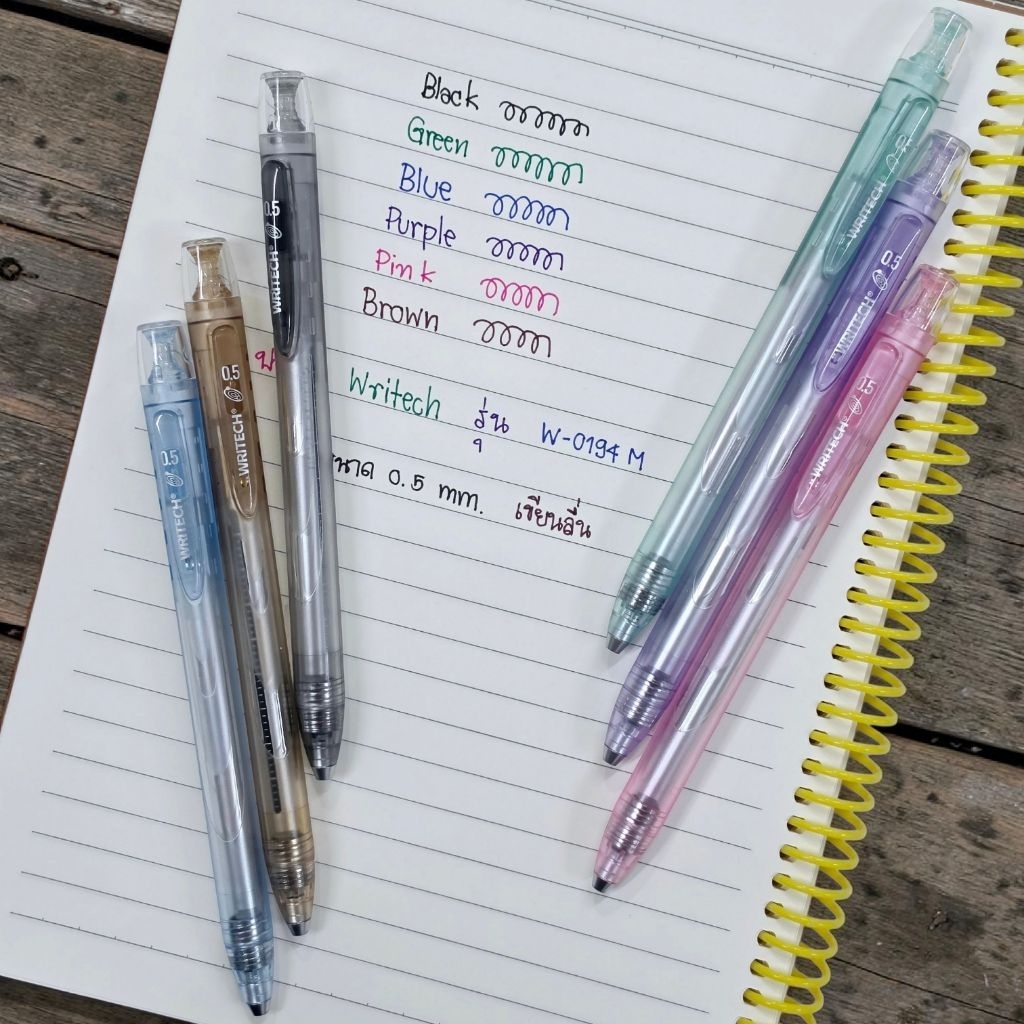 Black
Green
Blue
Purple
Pink
Brown
Writech รุ่น W-0194 M
0.5 mm. เขียนลื่น
0.5 WRITECH®
0.5 WRITECH®
0.5 WRITECH®
0.5 WRITECH®
0.5 WRITECH®
0.5 WRITECH®